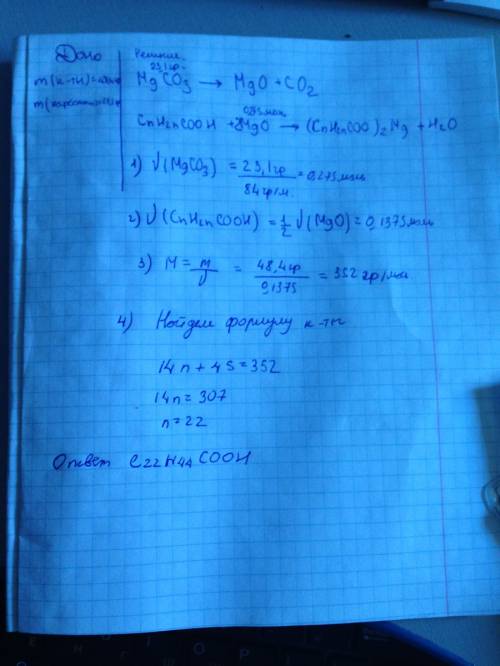 Дано
Решение:
m(к-ты)=
23,1гр.
MgCO3 → MgO + CO2
0,275моль
CnHnCOOH + MgO → (CnHnCOO)2Mg + H2O
1) √(MgCO3) = 23,1гр / 84гр/м. = 0,275моль
2) √(CnHnCOOH) = 1/2 √(MgO) = 0,1375моль
3) M = m/√ = 48,4гр / 0,1375 = 352 гр/моль
4) Найдем формулу к-ты
14n + 45 = 352
14n = 307
n = 22
Ответ C22H44COOH